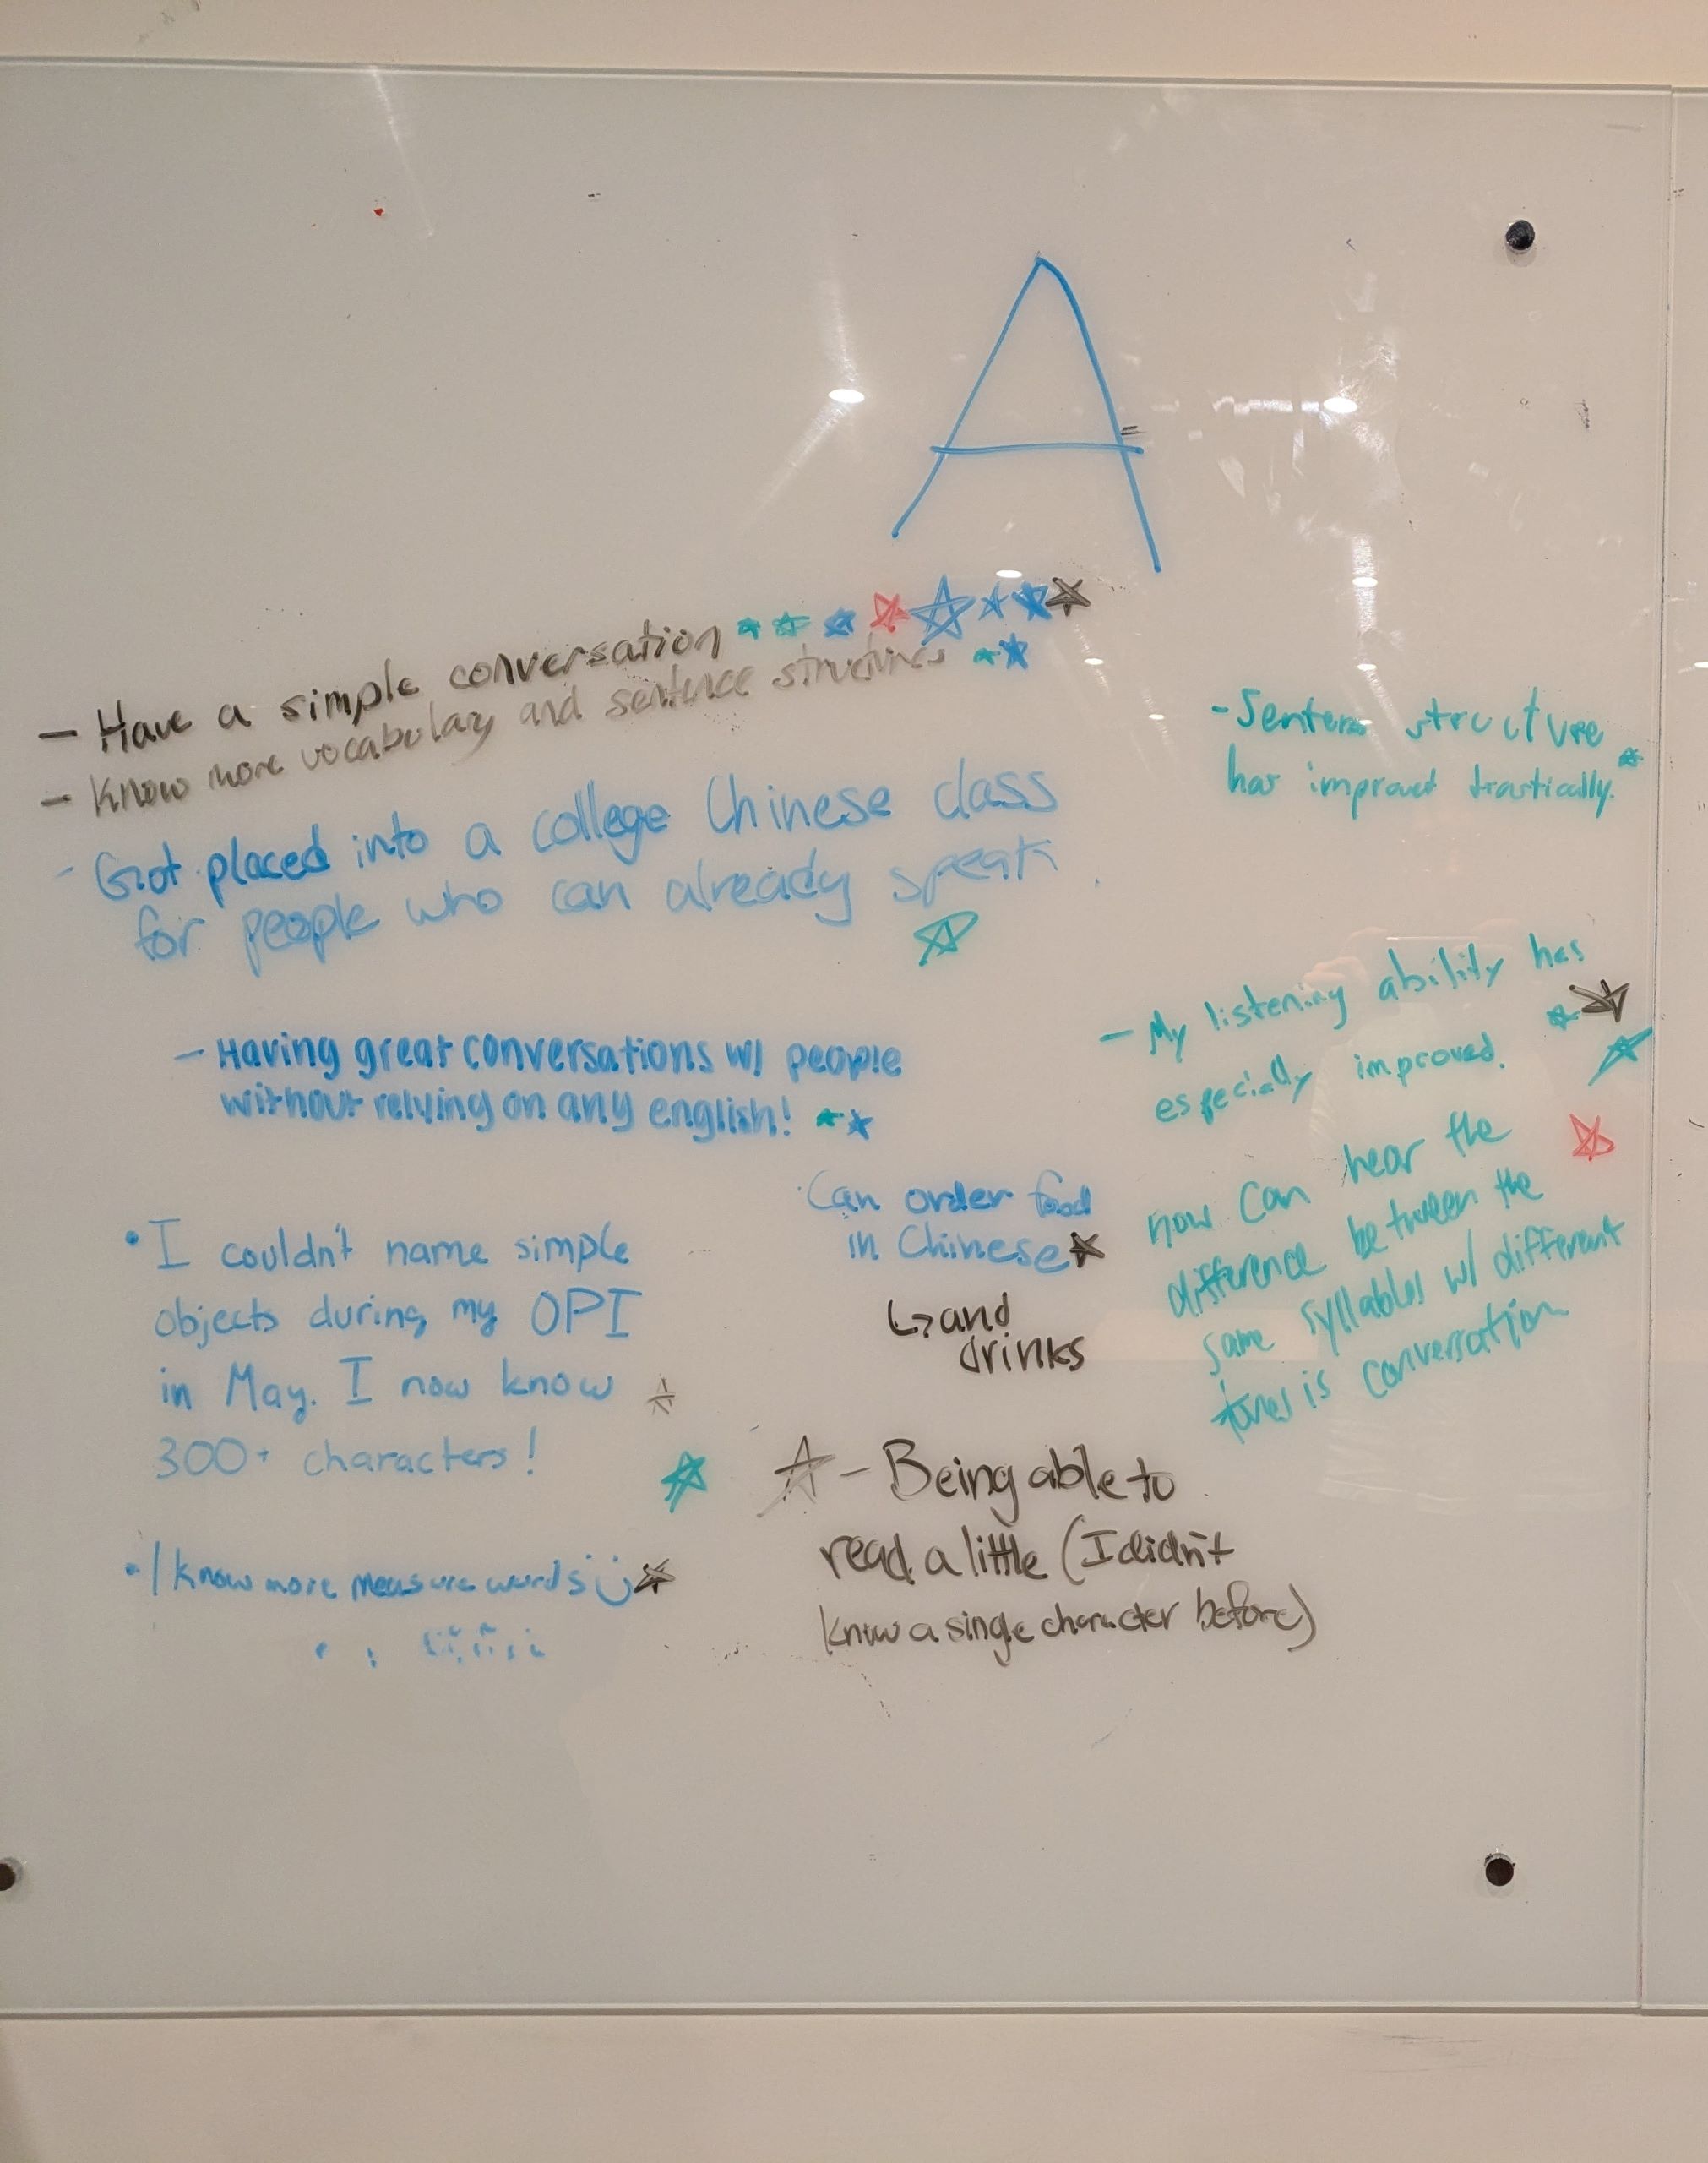 A
- Have a simple conversation
- Know more vocabulary and sentence structures
- Got placed into a college Chinese class
for people who can already speak.
- Having great conversations w/ people
without relying on any english!
• I couldn't name simple
objects during my OPI
in May. I now know
300+ characters!
• I know more measure words
Can order food
in Chinese
↳ and
drinks
- Being able to
read a little (I didn't
know a single character before)
- structure
has improved
- My listening ability has
especially improved.
now can hear the
difference between the
same syllables w/ different
tones is conversation